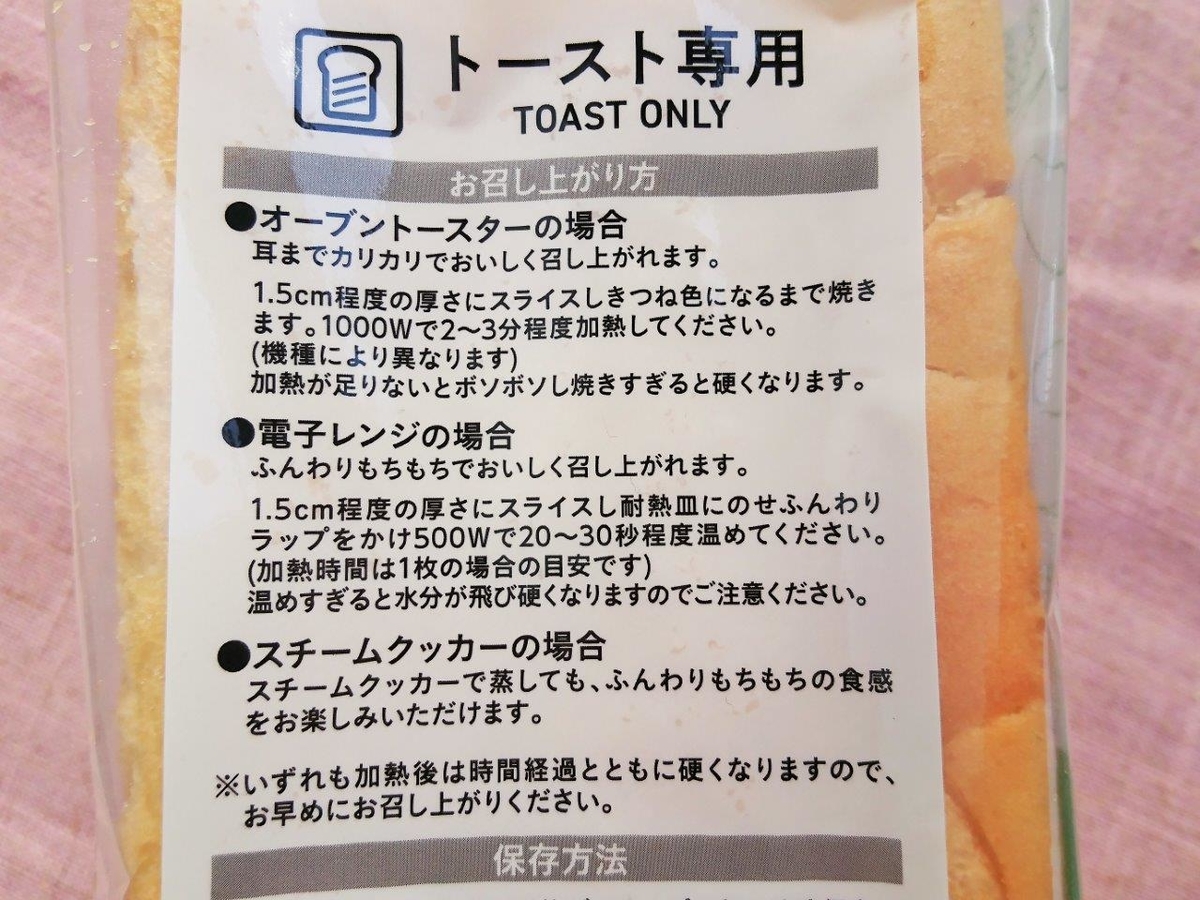 トースト専用
TOAST ONLY
お召し上がり方
●オーブントースターの場合
耳までカリカリでおいしく召し上がれます。
1.5cm程度の厚さにスライスしきつね色になるまで焼き
ます。1000Wで2〜3分程度加熱してください。
(機種により異なります)
加熱が足りないとボソボソし焼きすぎると硬くなります。
●電子レンジの場合
ふんわりもちもちでおいしく召し上がれます。
1.5cm程度の厚さにスライスし耐熱皿にのせふんわり
ラップをかけ500Wで20〜30秒程度温めてください。
(加熱時間は1枚の場合の目安です)
温めすぎると水分が飛び硬くなりますのでご注意ください。
●スチームクッカーの場合
スチームクッカーで蒸しても、ふんわりもちもちの食感
をお楽しみいただけます。
※いずれも加熱後は時間経過とともに硬くなりますので、
お早めにお召し上がりください。
保存方法